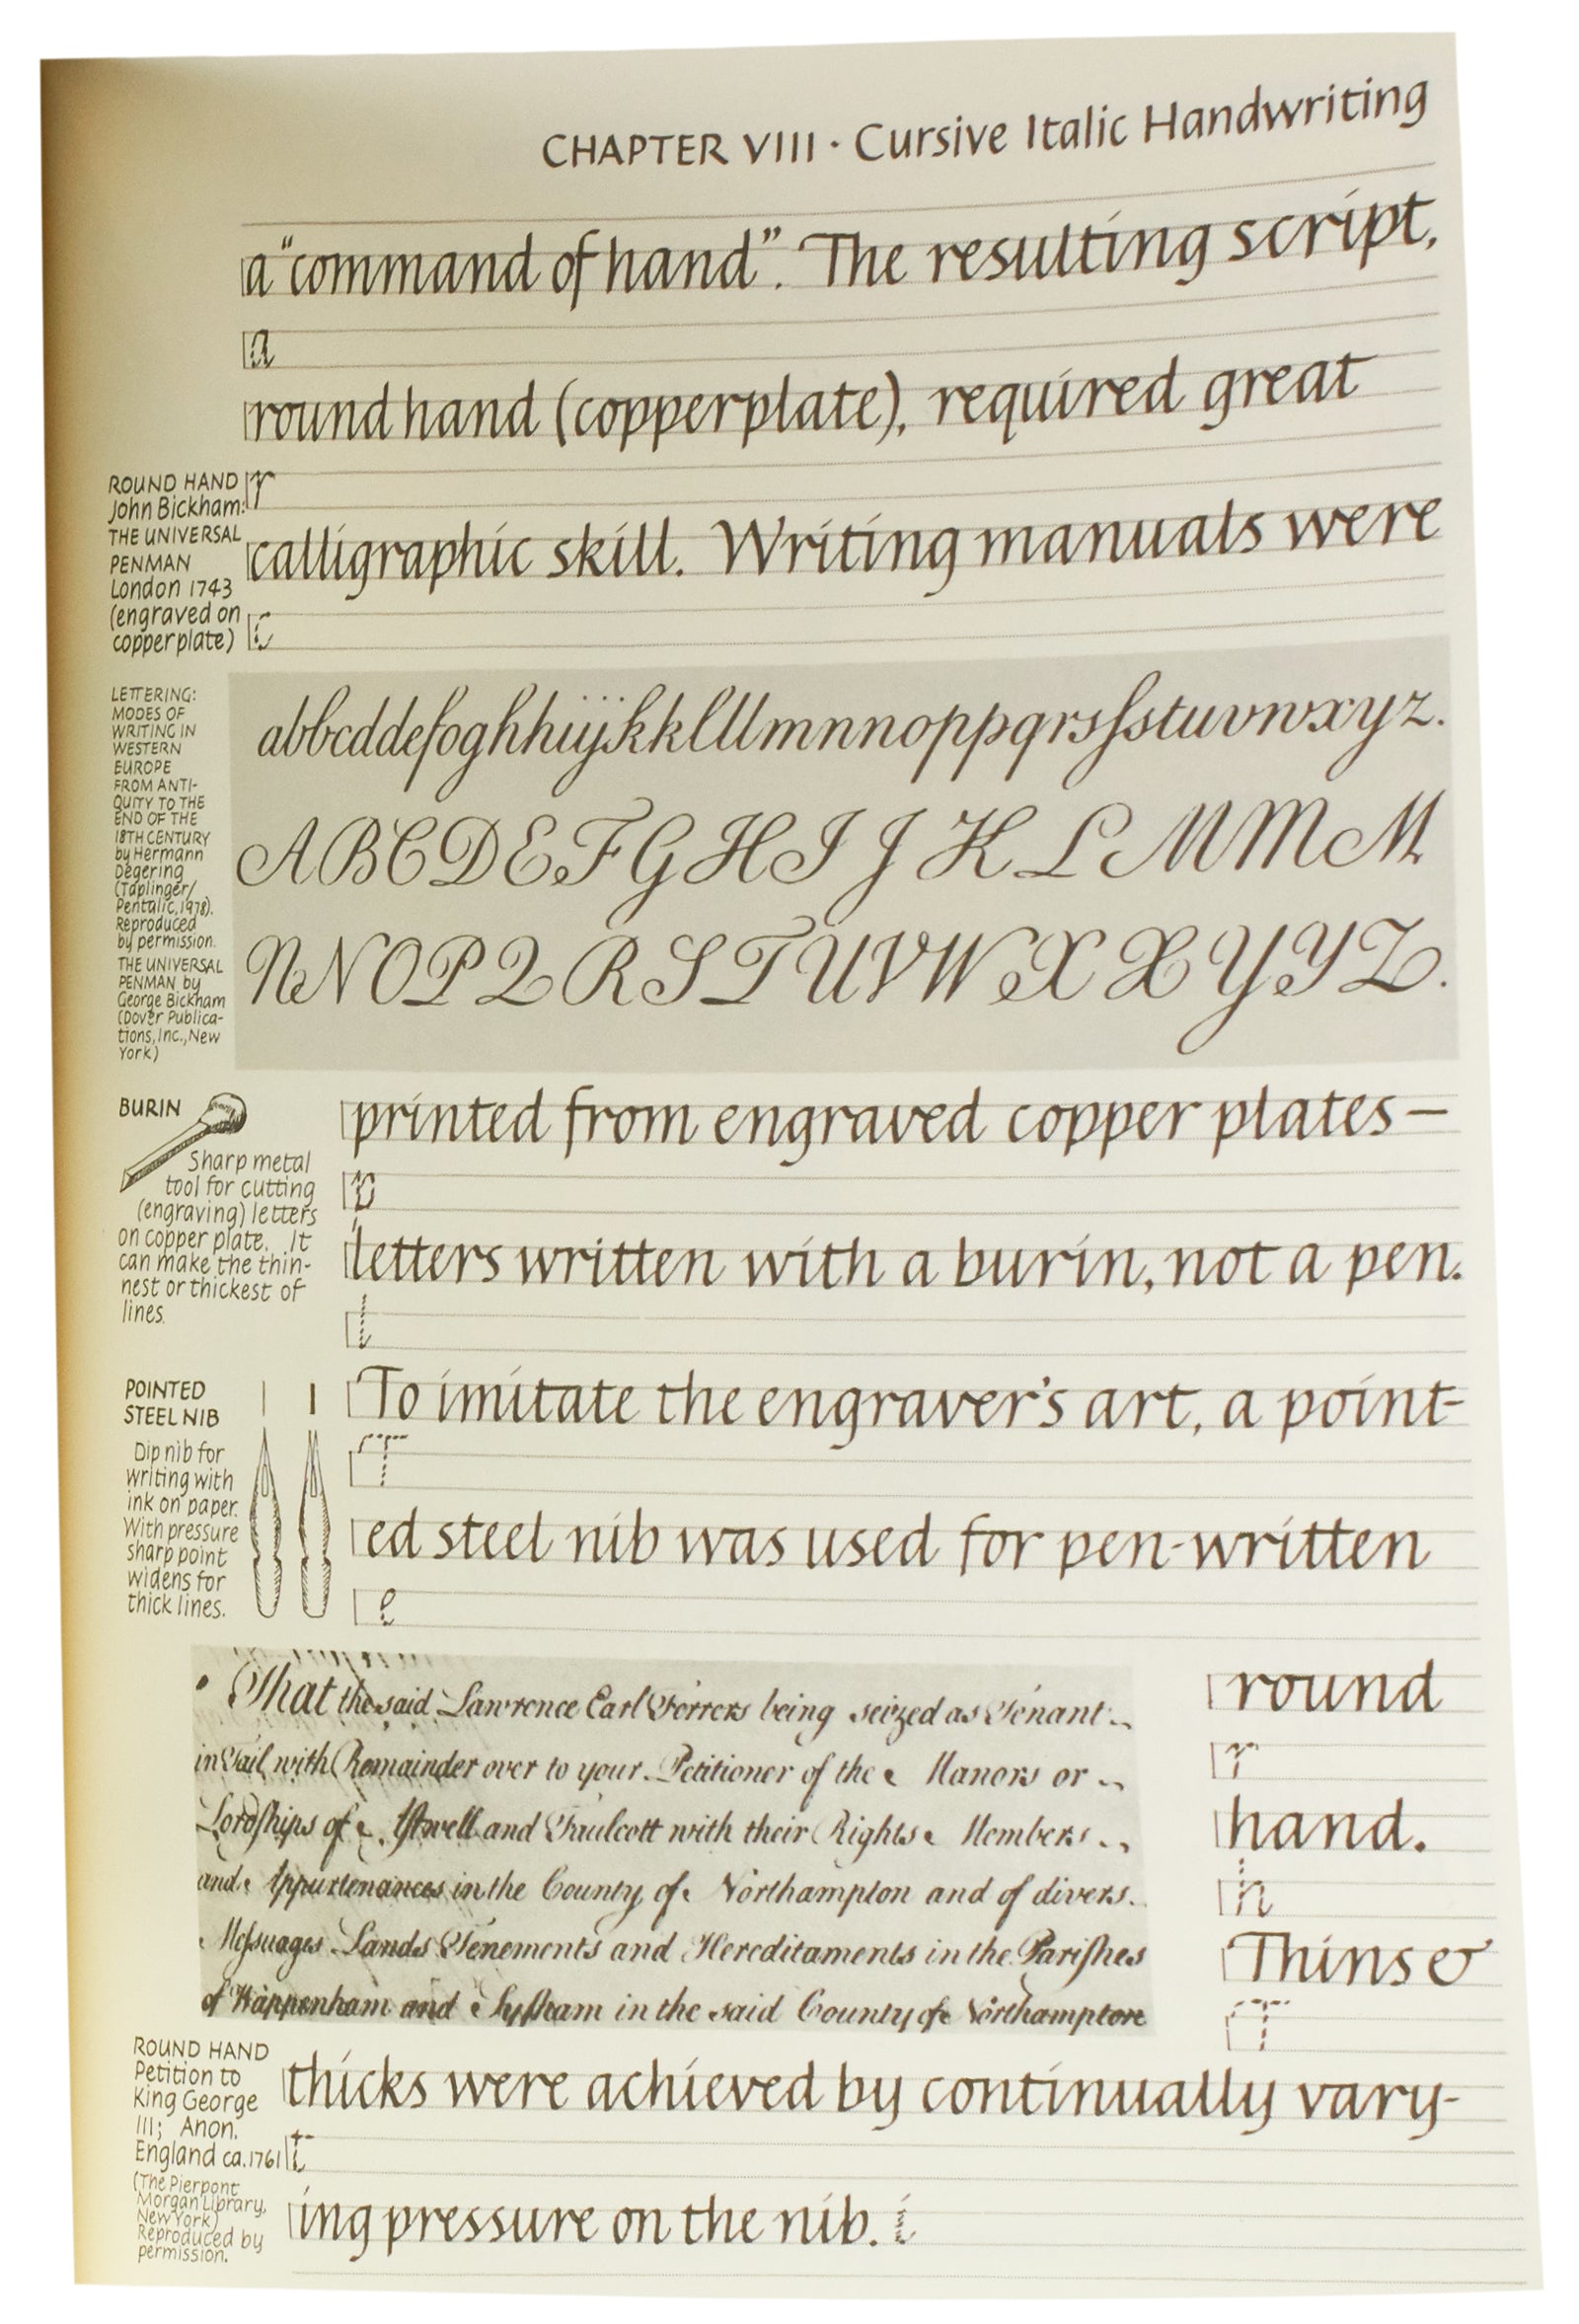 CHAPTER VIII · Cursive Italic Handwriting
a "command of hand". The resulting script,
a
round hand (copperplate), required great
r
calligraphic skill. Writing manuals were
c
ROUND HAND
John Bickham:
THE UNIVERSAL
PENMAN
London 1743
(engraved on
copper plate)
LETTERING:
MODES OF
WRITING IN
WESTERN
EUROPE
FROM ANTI-
QUITY TO THE
END OF THE
18TH CENTURY
by Hermann
Degering
(Taplinger/
Pentalic, 1978).
Reproduced
by permission.
THE UNIVERSAL
PENMAN by
George Bickham
(Dover Publica-
tions, Inc., New
York)
abbcddefoghhiijkklllmnnnoppqrsſstuvnwxyz.
ABCDEFGHIJKLMMM
NNOPQRSTUVWXXYYZ.
printed from engraved copper plates—
p
letters written with a burin, not a pen.
l
BURIN
Sharp metal
tool for cutting
(engraving) letters
on copper plate. It
can make the thin-
nest or thickest of
lines.
To imitate the engraver's art, a point-
T
ed steel nib was used for pen-written
e
POINTED
STEEL NIB
Dip nib for
writing with
ink on paper.
With pressure
sharp point
widens for
thick lines.
That the said Lawrence Earl Ferrers being seized as Tenant
in Tail with Remainder over to your Petitioner of the Manors or
Lordships of Astwell and Faulcott with their Rights Members
and Appurtenances in the County of Northampton and of divers
Meſsuages Lands Tenements and Hereditaments in the Pariſhes
of Wappenham and Syſham in the said County of Northampton
round
r
hand.
h
Thins &
T
thicks were achieved by continually vary-
t
ing pressure on the nib. i
ROUND HAND
Petition to
King George
III; Anon.
England ca. 1761
(The Pierpont
Morgan Library,
New York)
Reproduced by
permission.